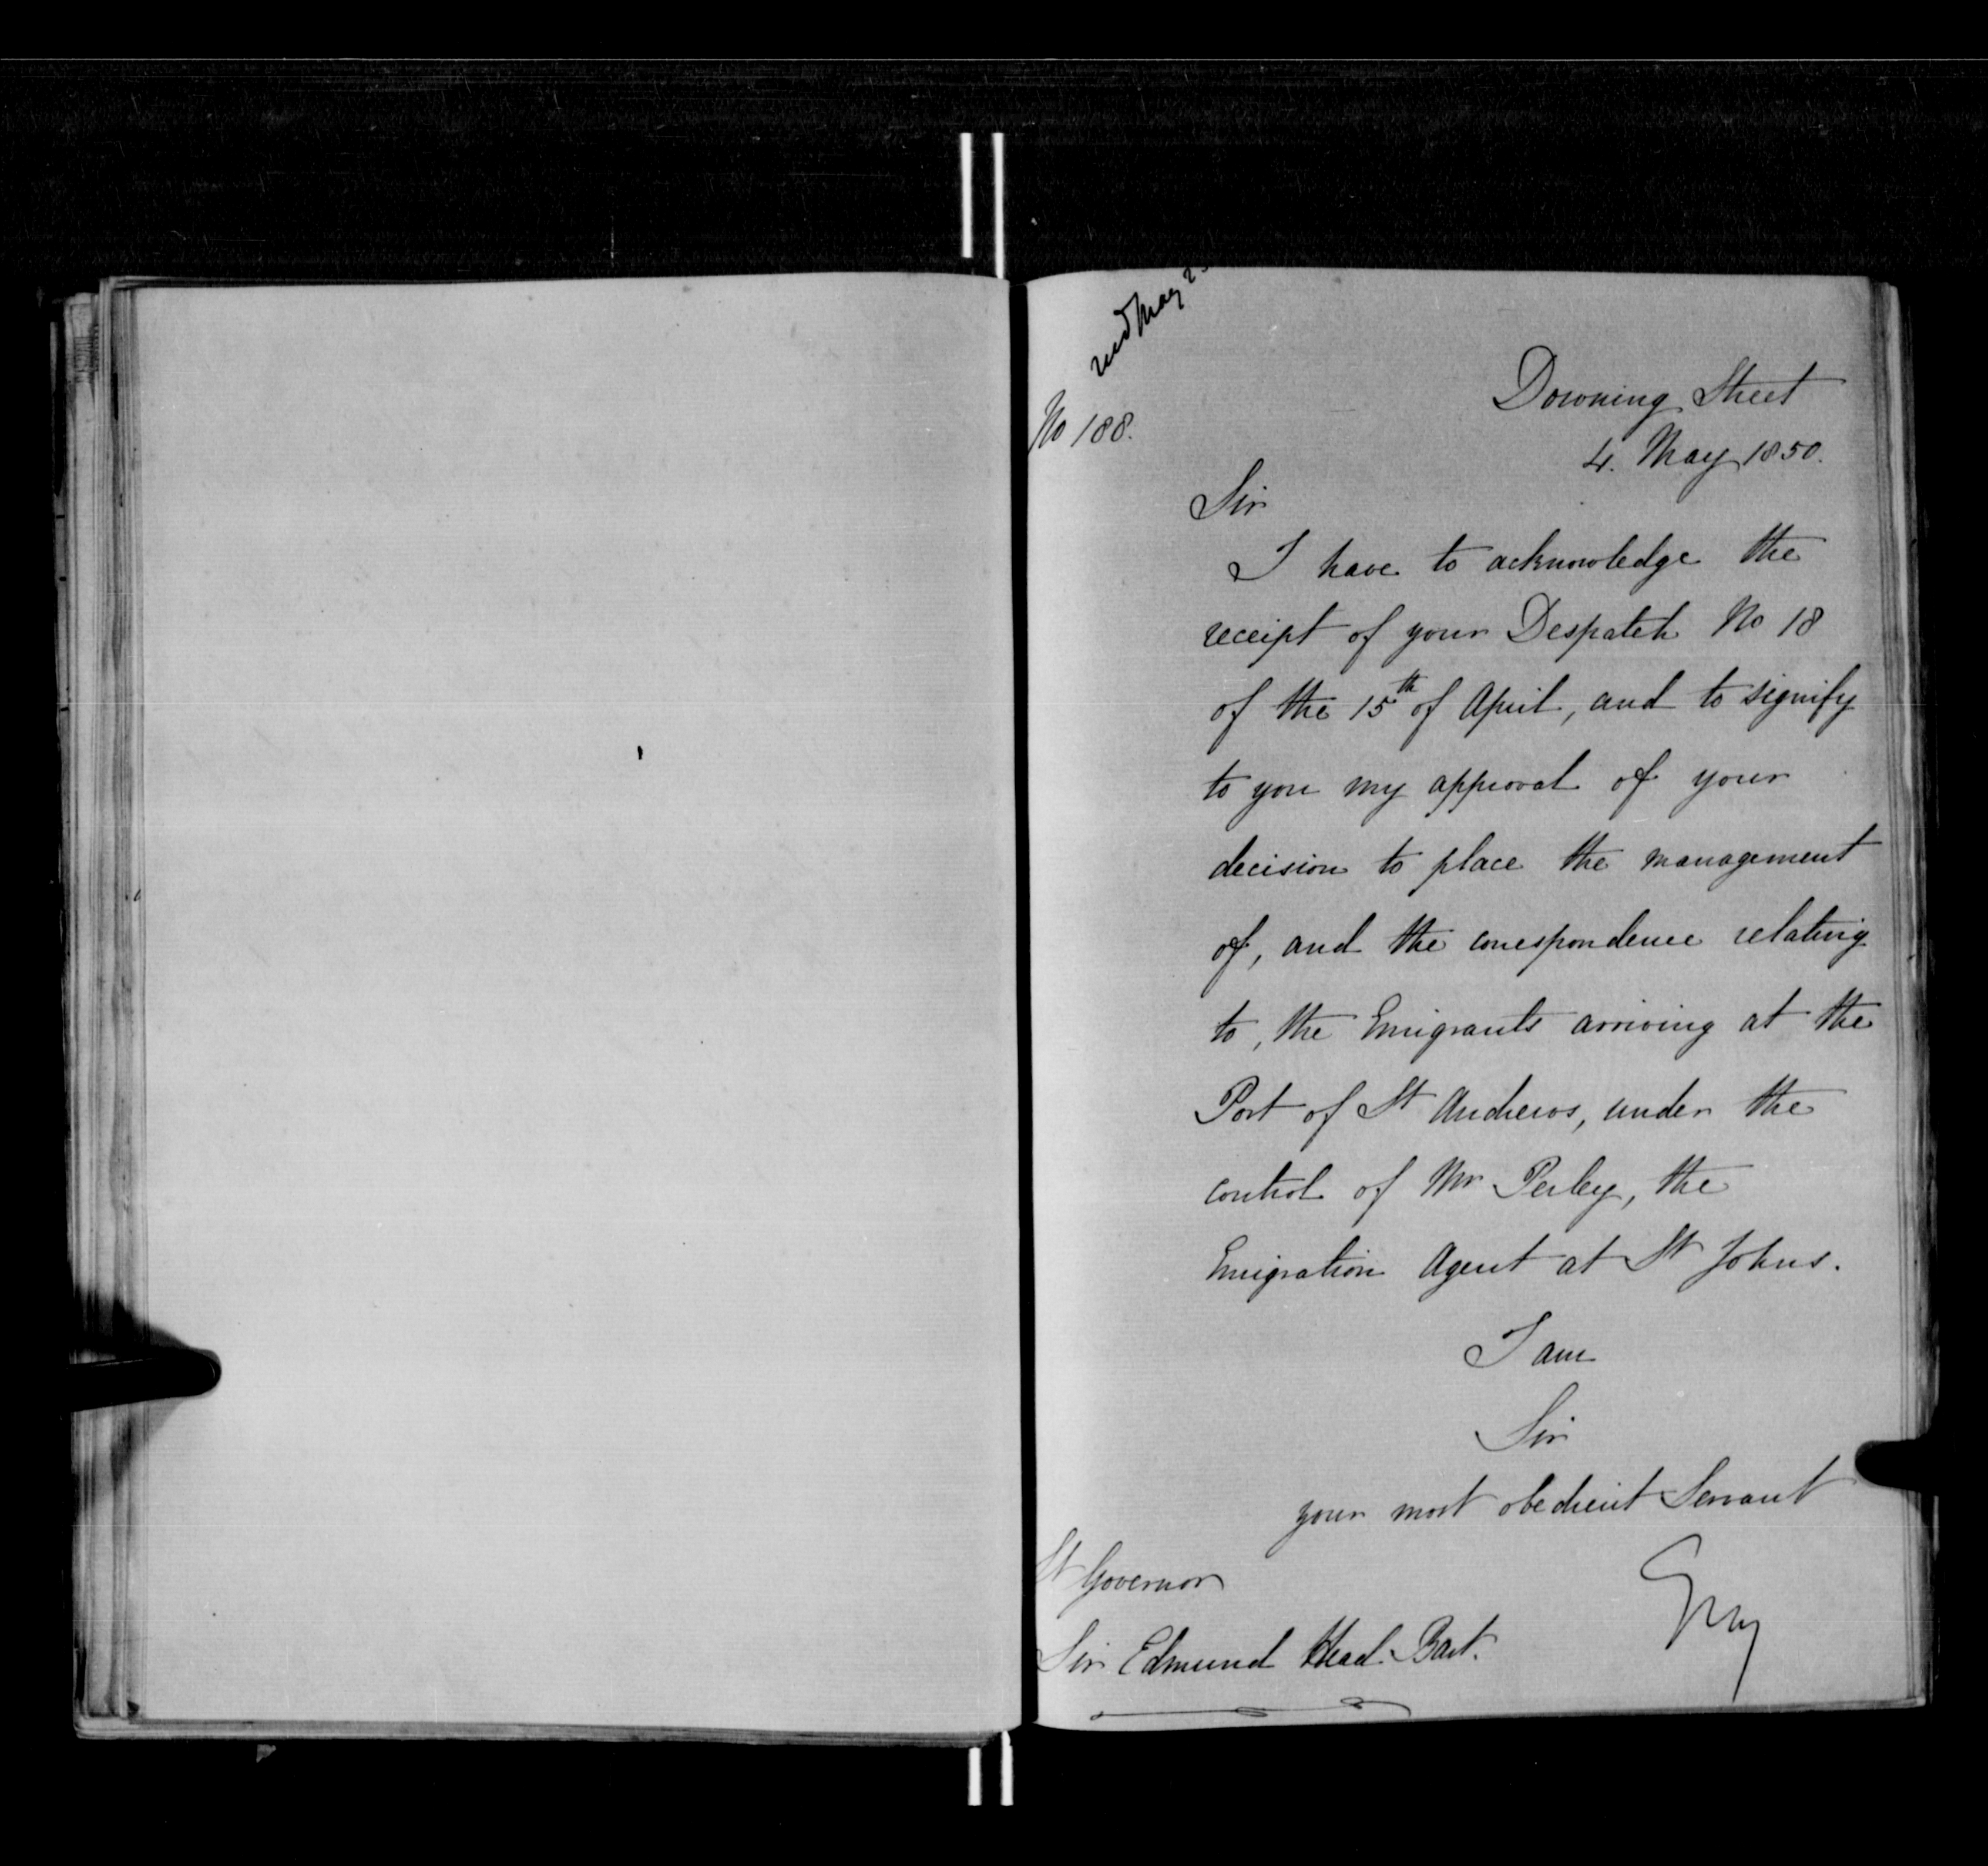 recd May
No 188.
Downing Street
4. May 1850.
Sir
I have to acknowledge the
receipt of your Despatch No 18
of the 15th of April, and to signify
to you my approval of your
decision to place the management
of, and the correspondence relating
to, the Emigrants arriving at the
Port of St Andrews, under the
control of Mr Perley, the
Emigration Agent at St Johns.
I am
Sir
your most obedient Servant
Grey
Lt Governor
Sir Edmund Head Bart.